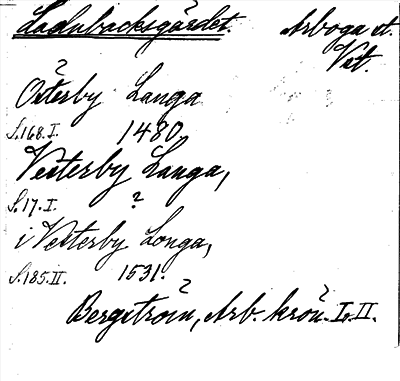 Ladubacksgärdet. Arboga st.
Vst.
?
Österby Langa
S.168.I. 1480.
Vesterby Langa,
S.17.I. ?
i Vesterby Longa,
S.185.II. 1531.
? ?
Bergström, Arb. krön. I. II.